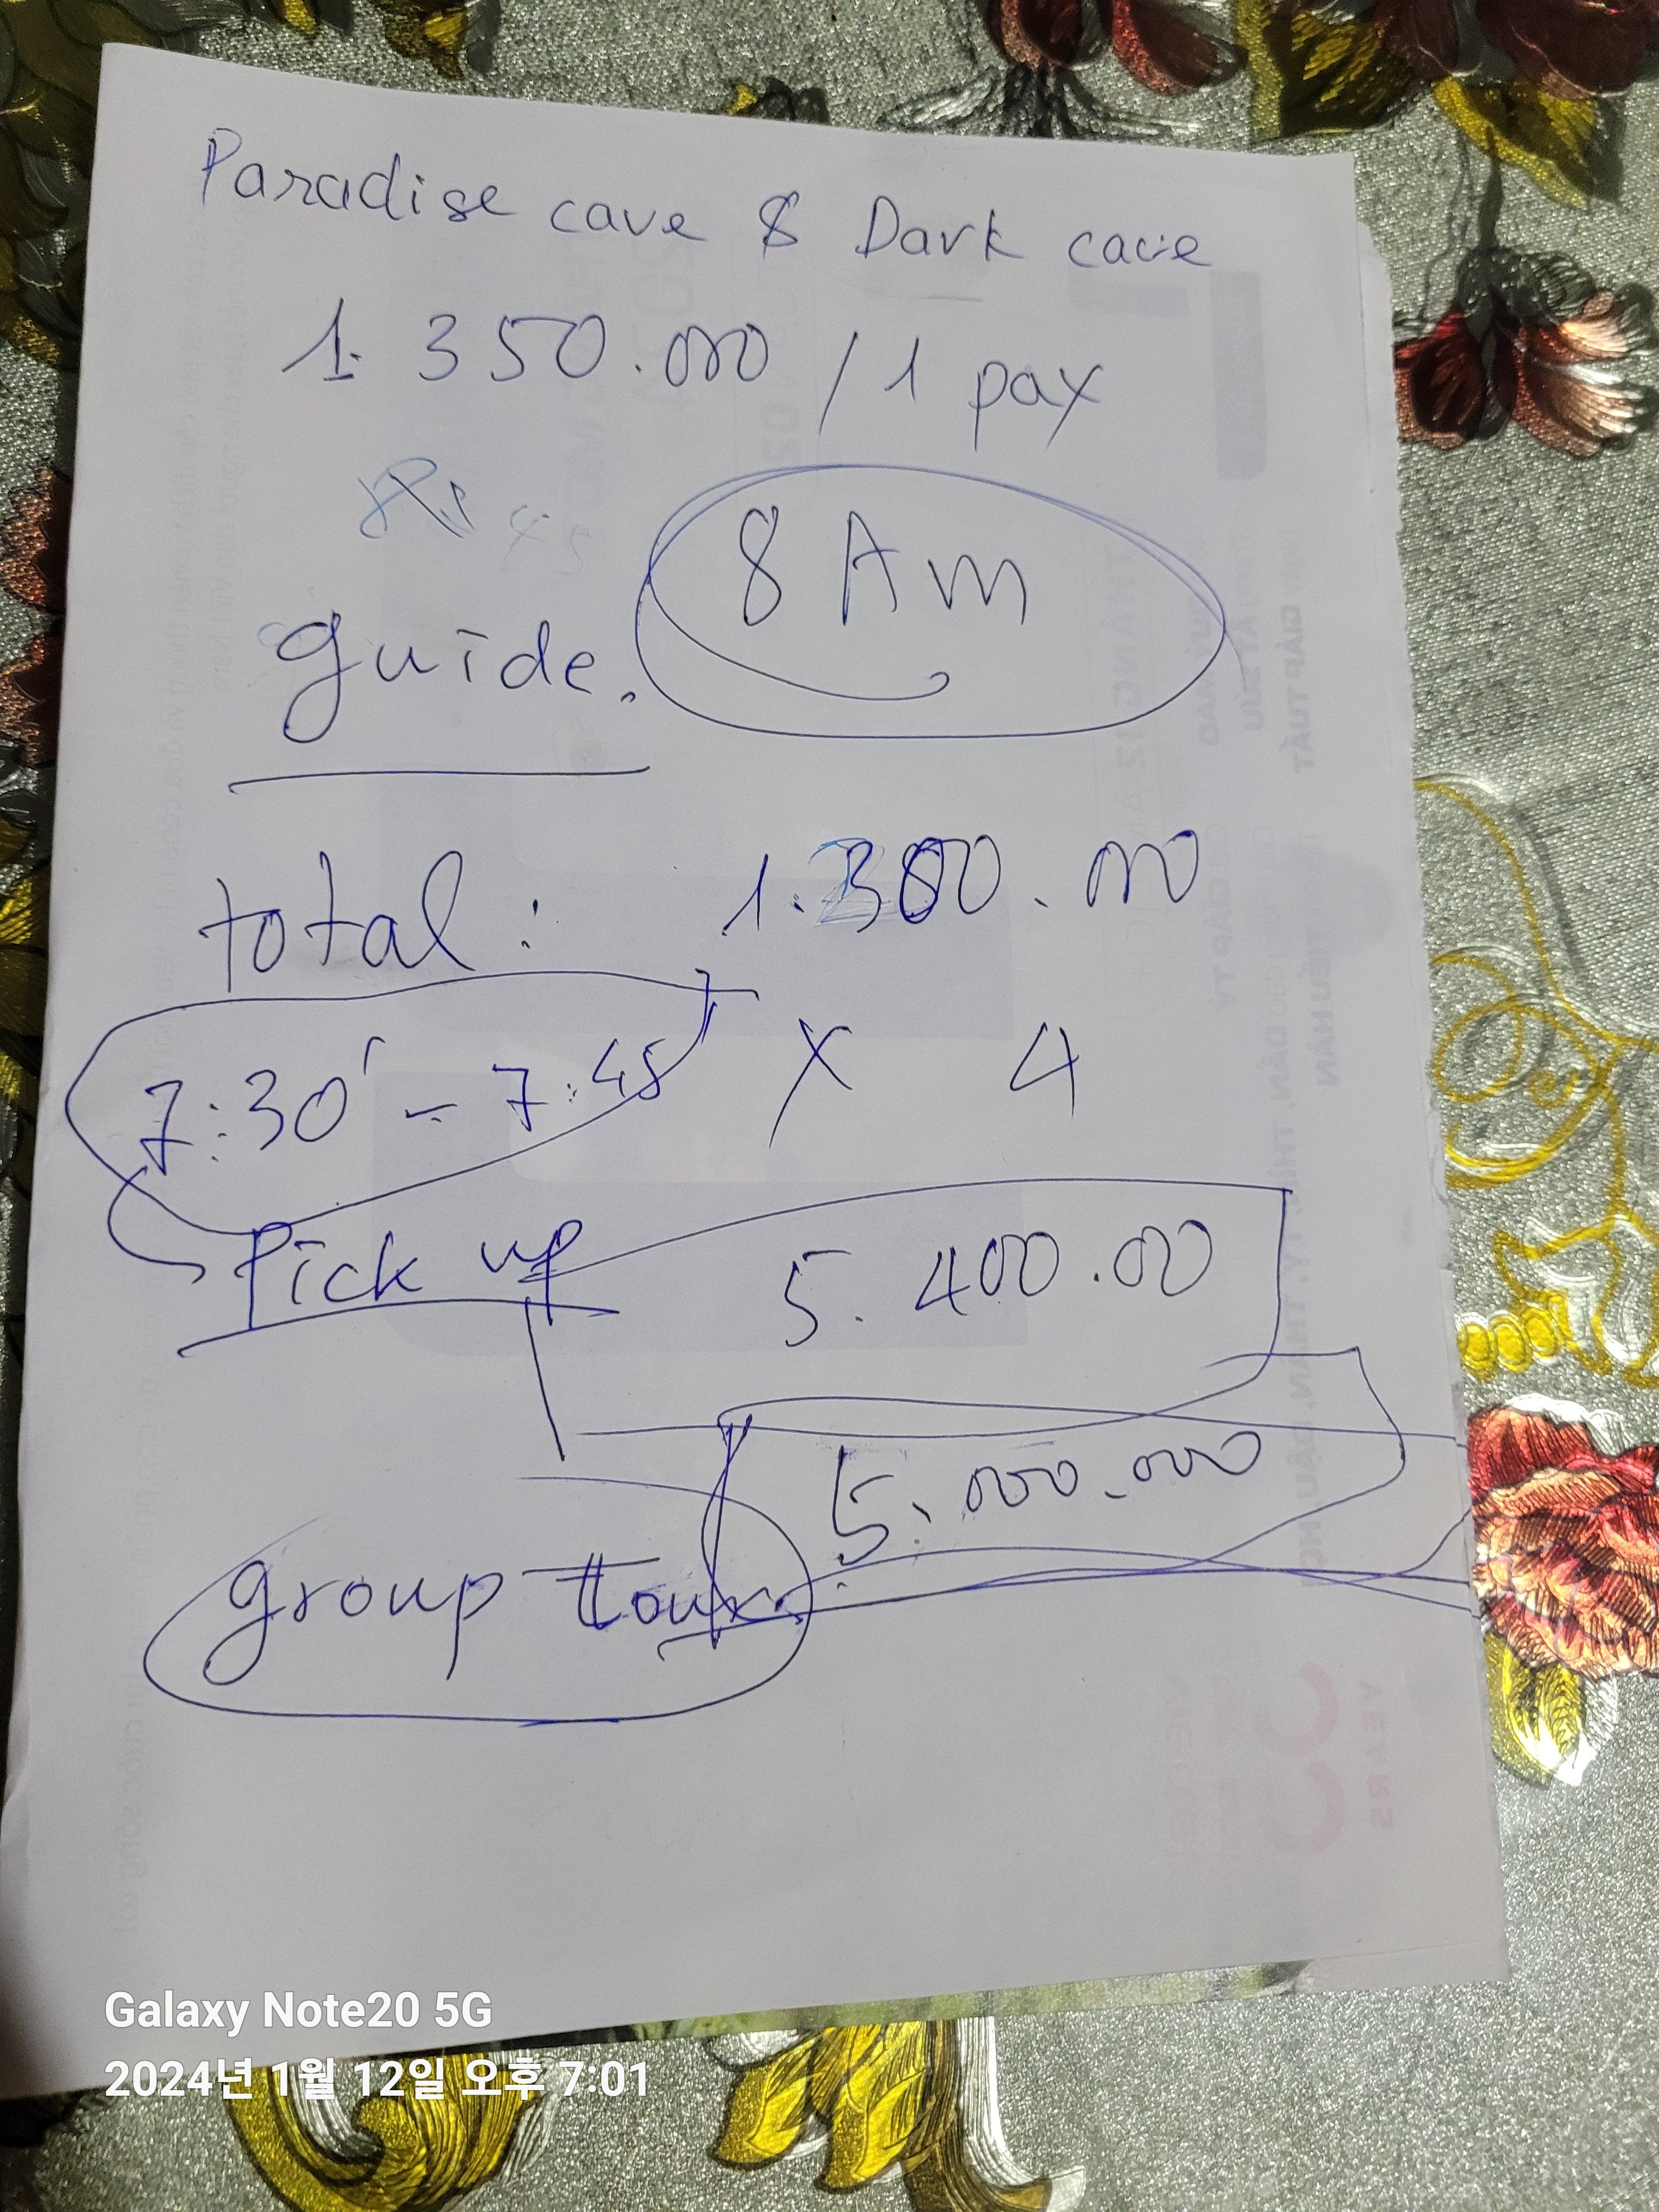 Paradise cave & Dark cave
1.350.000 / 1 pax
8 Am
guide.
total: 1.300.000
7:30' - 7:45 x 4
Pick up 5.400.00
5.000.000
group tour
Galaxy Note20 5G
2024년 1월 12일 오후 7:01